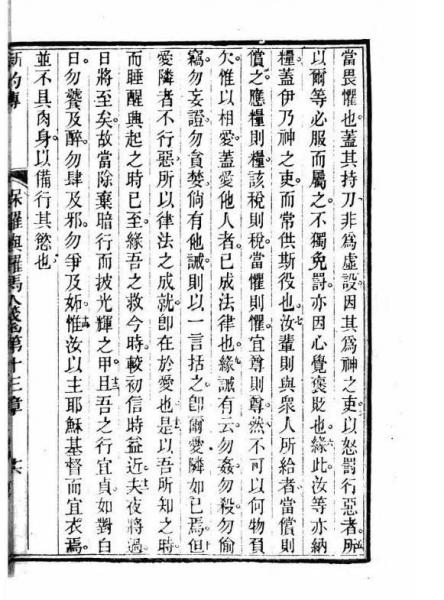 當畏懼也蓋其持刀非爲虛設因其爲神之吏以怒罰行惡者所
以爾等必服而屬之不獨免罰亦因心覺褒貶也緣此汝等亦納
糧蓋伊乃神之吏而常供斯役也汝輩則與衆人所給者當償則
償之應糧則糧該稅則稅當懼則懼宜尊則尊然不可以何物負
欠惟以相愛蓋愛他人者已成法律也緣誡有云勿姦勿殺勿偷
竊勿妄證勿貪婪倘有他誡則以一言括之卽爾愛隣如己焉但
愛隣者不行惡所以律法之成就卽在於愛也是以吾所知之時
而睡醒興起之時已至緣吾之救今時較初信時益近夫夜將過
日將至矣故當除棄暗行而披光輝之甲且吾之行宜貞如對白
日勿饕及醉勿肆及邪勿爭及妬惟汝以主耶穌基督而宜衣焉
並不具肉身以備行其慾也
新約傳 保羅與羅馬人 第十三章